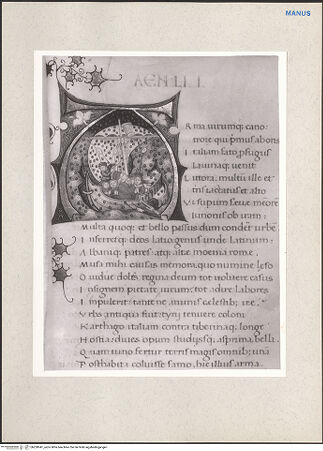 MANUS
AEN. LI. I.
Rma uirumq; cano
troie qui primus aboris
Italiam fato profugus
Lauinaq; uenit
Littora, multum ille et
terris iactatus et alto
Vi supum seuae memore
Iunonis ob iram:
Multa quoq; et bello passus dum conderet urbe
Inferretq; deos latio genus unde latinum:
Albaniq; patres: atq; alte moenia rome.
Musa mihi causas memora, quo numine leso
regina deum tot uoluere casus
Insignem pietate uirum: tot adire labores
Impulerit tantene animis celestib; ire.
Vrbs antiqua fuit tyrii tenuere coloni
Karthago italiam contra tiberinaq; longe
Hostia: diues opum studiisq; asperrima belli.
Quam iuno fertur terris magis omnib; una
Posthabita coluisse samo, hic illius arma.